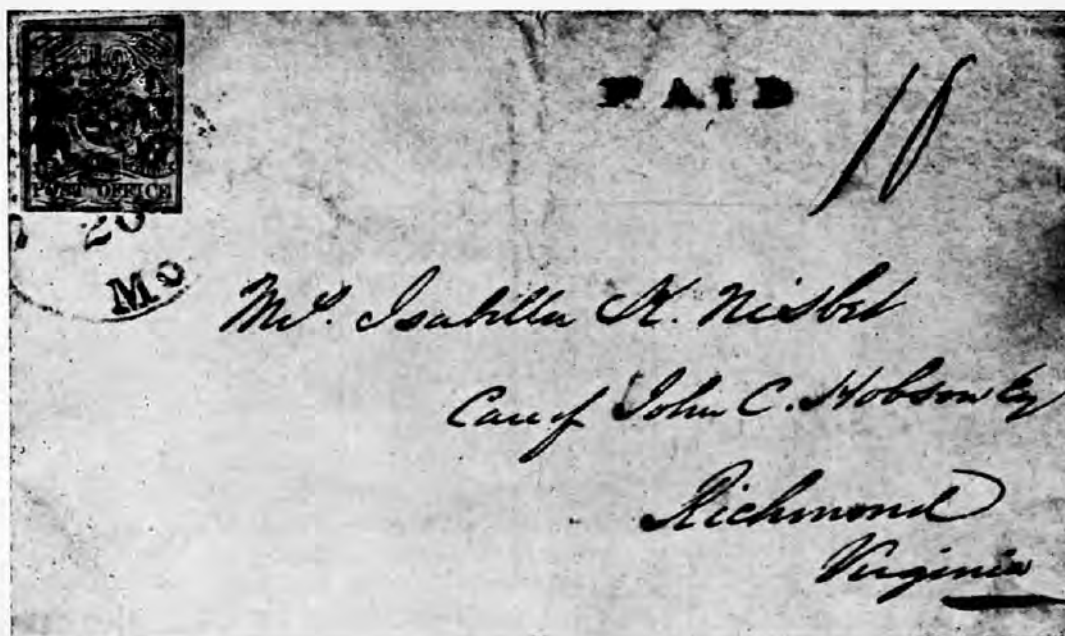 10
PAID 10
POST OFFICE
20
Mo
Mrs. Isabella K. Nisbet
Care of John C. Hobson Esq
Richmond
Virginia